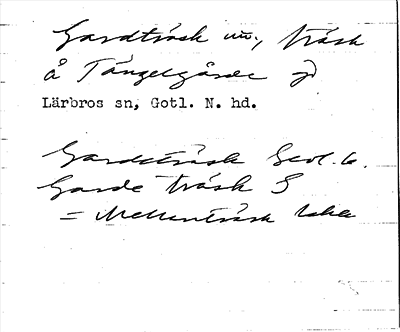 Gardträsk nn., träsk
å Tängelgårde
Lärbros sn, Gotl. N. hd.
Gardsträsk Geol. b.
Garde träsk S
= Mellanträsk